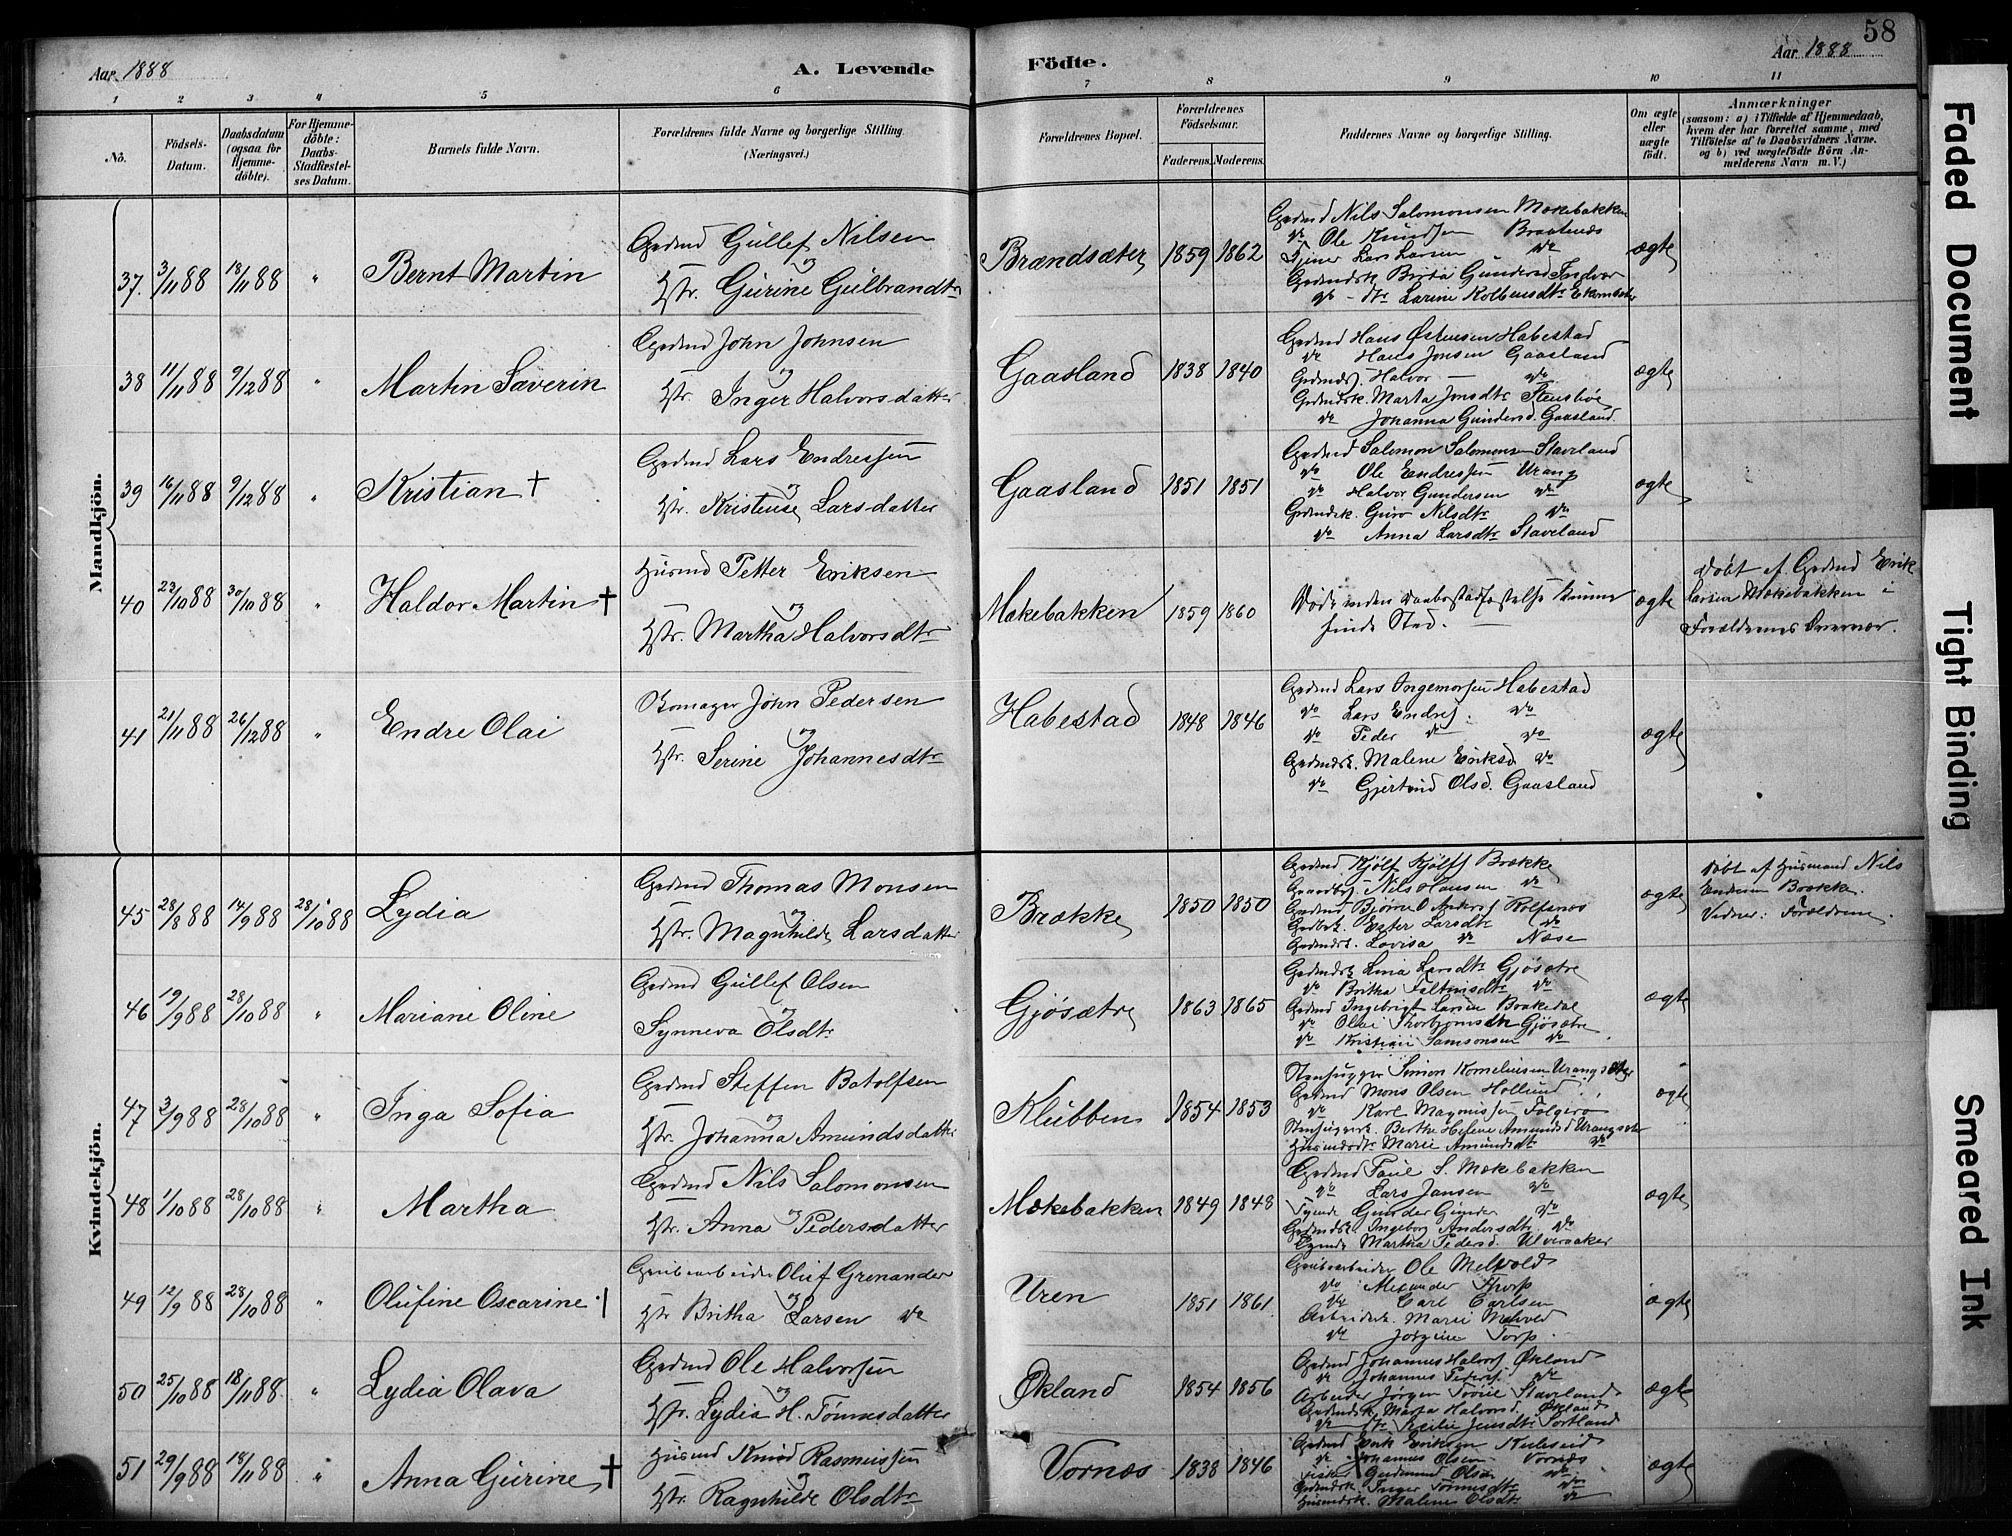 58
Aar 1888
A. Levende Födte.
Aar 1888
1 2 3 4 5 6 7 8 9 10 11
No.
Födsels-Datum.
Daabsdatum (ogsaa for Hjemme-döbte).
For Hjemme-döbte: Daabs-Stadfæstel-ses Datum.
Barnets fulde Navn.
Forældrenes fulde Navne og borgerlige Stilling (Næringsvei.)
Forældrenes Bopæl.
Forældrenes Födselsaar.
Faderens. Moderens.
Faddernes Navne og borgerlige Stilling.
Om ægte eller uægte födt.
Anmærkninger
(saasom: a) i Tilfælde af Hjemmedaab,
hvem der har forrettet samme, med
Tilföielse af to Daabsvidners Navne.
og b) ved uægtefödte Börn An-
melderens Navn m. V.)
Mandkjön.
37. 3/11 88 18/11 88 " Bernt Martin
Grdmd Gullef Nilsen
og
Hstr. Gurine Gulbrandtr
Brandsæter 1859 1862
Grdmd Nils Salomonsen Mækebakken
do Ole Knudsen Braatenæs
Tjener Lars Larsen do
ægte
38 11/11 88 9/12 88 " Martin Severin
Grdmd John Johnsen
og
Hstr. Inger Halvorsdatter
Gaasland 1838 1840
Grdmd Hans Østensen Habestad
do Hans Jonsen Gaasland
Grdmds. Halvor — do
Grdmdsk. Marta Jonsdtr Stensbøe
do Johanna Gundersd. Gaasland
ægte
39 16/11 88 9/12 88 " Kristian †
Grdmd Lars Endressen
og
Hstr. Kristense Larsdatter
Gaasland 1851 1851
Grdmd Salemon Salomonsen Stavland
do Ole Endressen Urang
do Halvor Gundersen do
Grdmdsk. Guro Nilsdtr do
do Anna Larsdtr Staveland
ægte
40 23/10 88 30/10 88 " Haldor Martin †
Husmd Petter Eriksen
og
Hstr. Martha Halvorsdtr
Mækebakken 1859 1860
Døde inden Daabsstadfæstelse kunne
finde Sted.
ægte
Døbt af Grdmd Erik
Larsen Mækebakken i
Forældrenes Nærvær.
41 21/11 88 26/12 88 " Endre Olai
Skomager John Pedersen
og
Hstr. Serine Johannesdtr
Habestad 1848 1846
Grdmd Lars Ingemorsen Habestad
do Lars Endres. do
do Peder do do
Grdmdsk. Malene Eriksd do
do Gjertrud Olsd. Gaasland
ægte
Kvindekjön.
45 28/8 88 14/9 88 28/10 88 Lydia
Grdmd Thomas Monsen
og
Hstr. Magnhilde Larsdatter
Brække 1850 1850
Grdmd. Kjølf Kjølfs Brække
Nils Hansen do
Grdmd Bjørne O Anders Rolfsnæs
Ester Larsdtr do
Grdmdsk. Lovisa do Næse
ægte
Døbt af Husmand Nils
Endresen Brække.
Vidner: Forældrene.
46 19/9 88 28/10 88 " Mariane Oline
Grdmd Gullef Olsen
og
Synneva Olsdtr
Gjøsætre 1863 1865
Grdmdsk Lina Larsdtr Gjøsætre
do Britha do
Grdmd Ingebrigt Larsen Brakedal
do Olai Gjøsætre
do Kristian Samsonsen do
ægte
47 2/9 88 28/10 88 " Inga Sofia
Grdmd Steffen Botolfsen
og
Hstr. Johanna Amundsdatter
Klubben 1854 1853
Stenhugger Simon Korneliusen Urangsvåg
Grdmd Mons Olsen Hollund
do Karl Magnussen Folgerø
Berthe Helene Amundsd Urangsvåg
Marie Amundsdtr do
ægte
48 1/10 88 28/10 88 " Martha
Grdmd Nils Salomonsen
og
Hstr. Anna Pedersdatter
Mækebakken 1849 1848
Grdmd Paul S. Mækebakken
do Lars Jansen do
Gunder Gunder do
Grdmdsk. Ingeborg Andersdtr do
Martha Pedersd. Ulveraaker
ægte
49 12/9 88 28/10 88 " Olufine Oscarine †
Grubearbeider Oluf Grenander
og
Hstr Britha Larsen do
Uren 1851 1861
Grubearbeider Ole Melvold
do Alexander Thorp
do Carl Carlsen
Marie Melvold
do Jorgine Torp
ægte
50 25/10 88 18/11 88. " Lydia Olava
Grdmd Ole Halvorsen
og
Hstr. Lydia H. Tønnesdatter
Økland 1854 1856
Grdmd Johannes Halvors. Økland
do Johannes Peders. do
Arbeider Jørgen Tovie Staveland
Grdmdsk Marta Halvorsd. Økland
Jensdtr Sortland
ægte
51 29/9 88 18/11 88 " Anna Gurine †
Husmd Knud Rasmussen
og
Hstr. Ragnhilde Olsdtr
Vornæs 1838 1846
Grdmd Erik Eriksen Kuleseid
do Johannes Olsen Vornæs
Fisker Gudmund Olsen do
Grdmdsk Inger Tønnesdtr do
Husmdsk. Malene Olsdtr do
ægte
Faded Document
Tight Binding
Smeared Ink